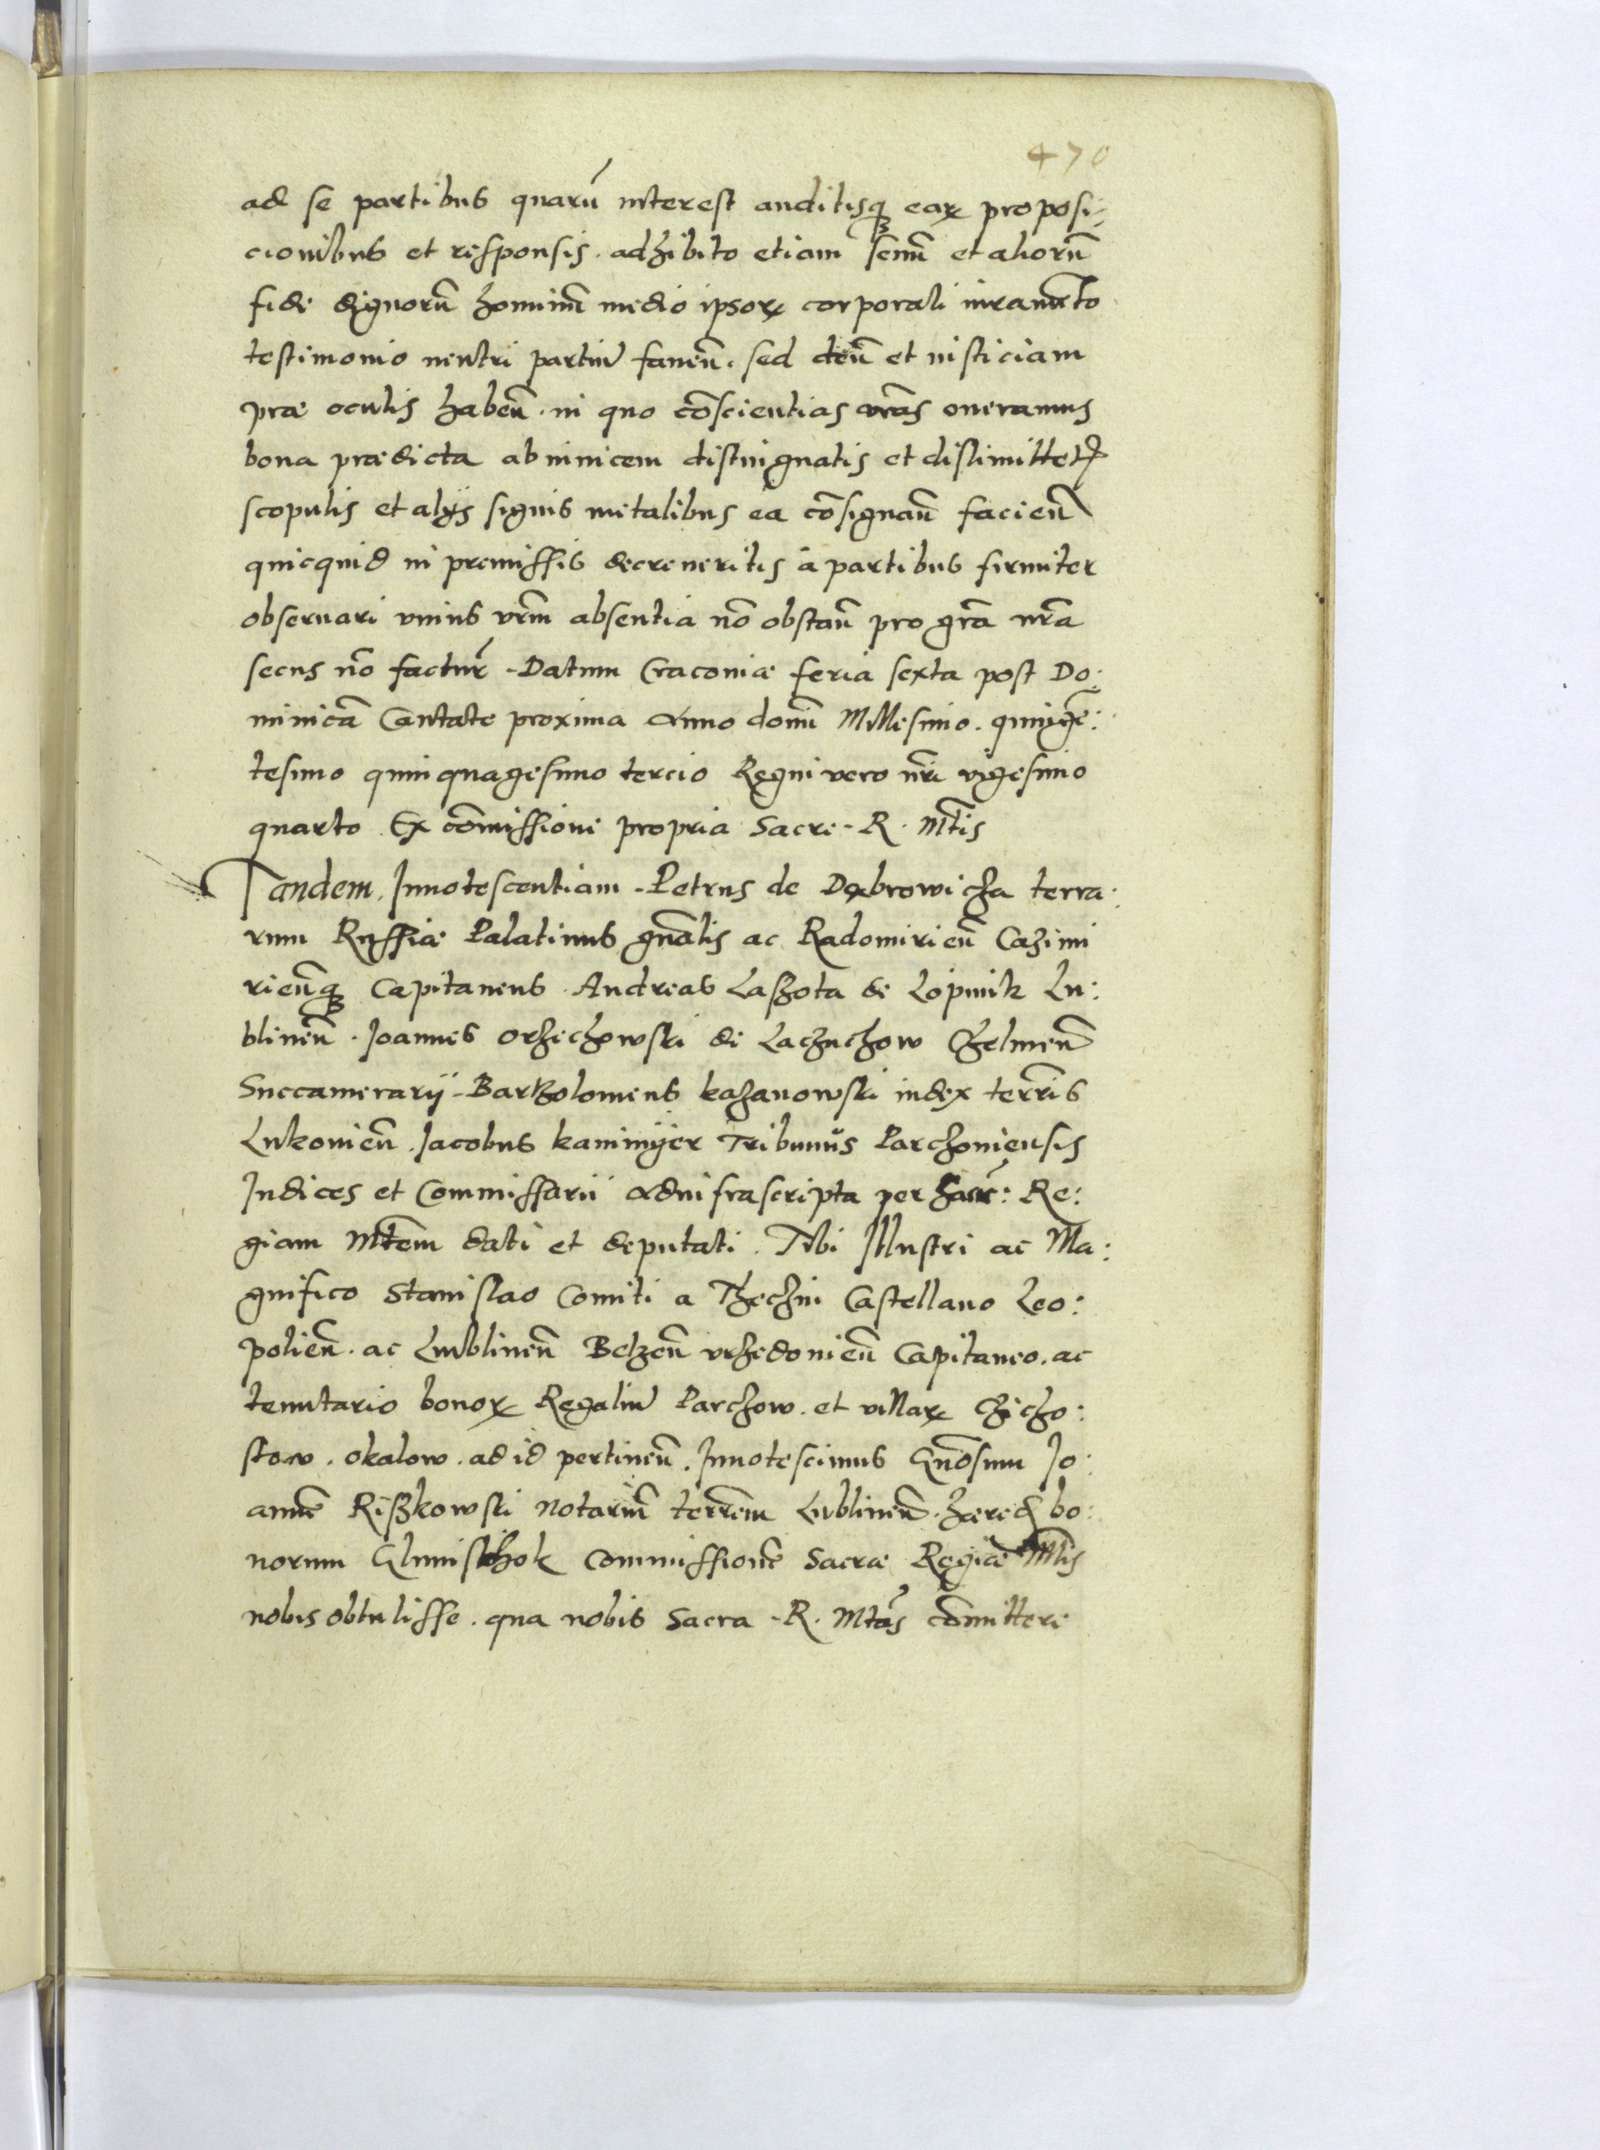 470
ad se partibus quarū interest auditisqꝫ eaꝝ proposi:
cionibus et responsis. adhibito etiam senū et aliorū
fide dignorū hominū medio ipsoꝝ corporali iuramēto
testimonio neutri partiū fauen̄. sed deū et iusticiam
præ oculis haben̄. in quo cōscientias vr̄as oneramus
bona prædicta abinuicem distinguatis et dislimittetꝭ
scopulis et alÿs signis mitalibus ea cōsignan̄ facien̄
quicquid in premissis decreueritis à partibus firmiter
obseruari vnius vr̄m absentia nō obstan̄ pro gr̄a nr̄a
secus nō factur̄ - Datum Cracoviæ feria sexta post Do:
minicā Cantate proxima Anno domī Millesimo. quinge:
tesimo quinquagesimo tercio Regni vero nr̄i vigesimo
quarto. Ex cōmissione propria Sacre - R. Mt̄is
Tandem. Innotescentiam - Petrus de Dąbrowicza terra:
rum Russiæ Palatinus gn̄alis ac Radomirien̄ Cazimi
rien̄qꝫ Capitaneus. Andreas Laszota de Lopinik Lu:
blinen̄. Joannes Orzechowski de Laczuchow Chelmen̄
Succamerarÿ - Bartholomeus kazanowski iudex terr̄is
Lukouien̄. Jacobus kaminÿer Tribunus Parchouiensis
Judices et Commissarii ad infrascripta per Sacr̄: Re:
giam Mt̄em dati et deputati. Tibi Illustri ac Ma:
gnifico Stanislao Comiti a Thechin Castellano Leo:
polien̄. ac Lublinen̄ Belzen̄ vrzedouien̄ Capitaneo. ac
tenutario bonoꝝ Regaliū Parchow. et villaꝝ Chicho:
stow. okalow. ad id pertinen̄. Innotescimus Gn̄osum Jo:
annē Riszkowski Notariū terrēm Lublinen̄. hæred bo:
norum Glinisthok Commissionē Sacræ Regiæ Mt̄is
nobis obtulisse. qua nobis Sacra - R. Mt̄as cōmittere